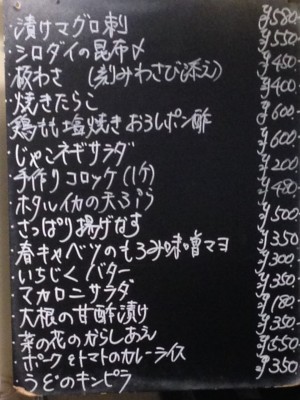 ・漬けマグロ刺 ¥580
・シロダイの昆布〆 ¥550
・板わさ (刻みわさび添え) ¥450
・焼きたらこ ¥400
・鶏もも塩焼きおろしポン酢 ¥600
・じゃこネギサラダ ¥600
・手作りコロッケ(1ケ) ¥200
・ホタルイカの天ぷら ¥480
・さっぱり揚げなす ¥500
・春キャベツのもろみ味噌マヨ ¥350
・いちじくバター ¥300
・マカロニサラダ ¥350
・大根の甘酢漬け ¥180
・菜の花のからしあえ ¥350
・ポークとトマトのカレーライス ¥550
・うどのキンピラ ¥350